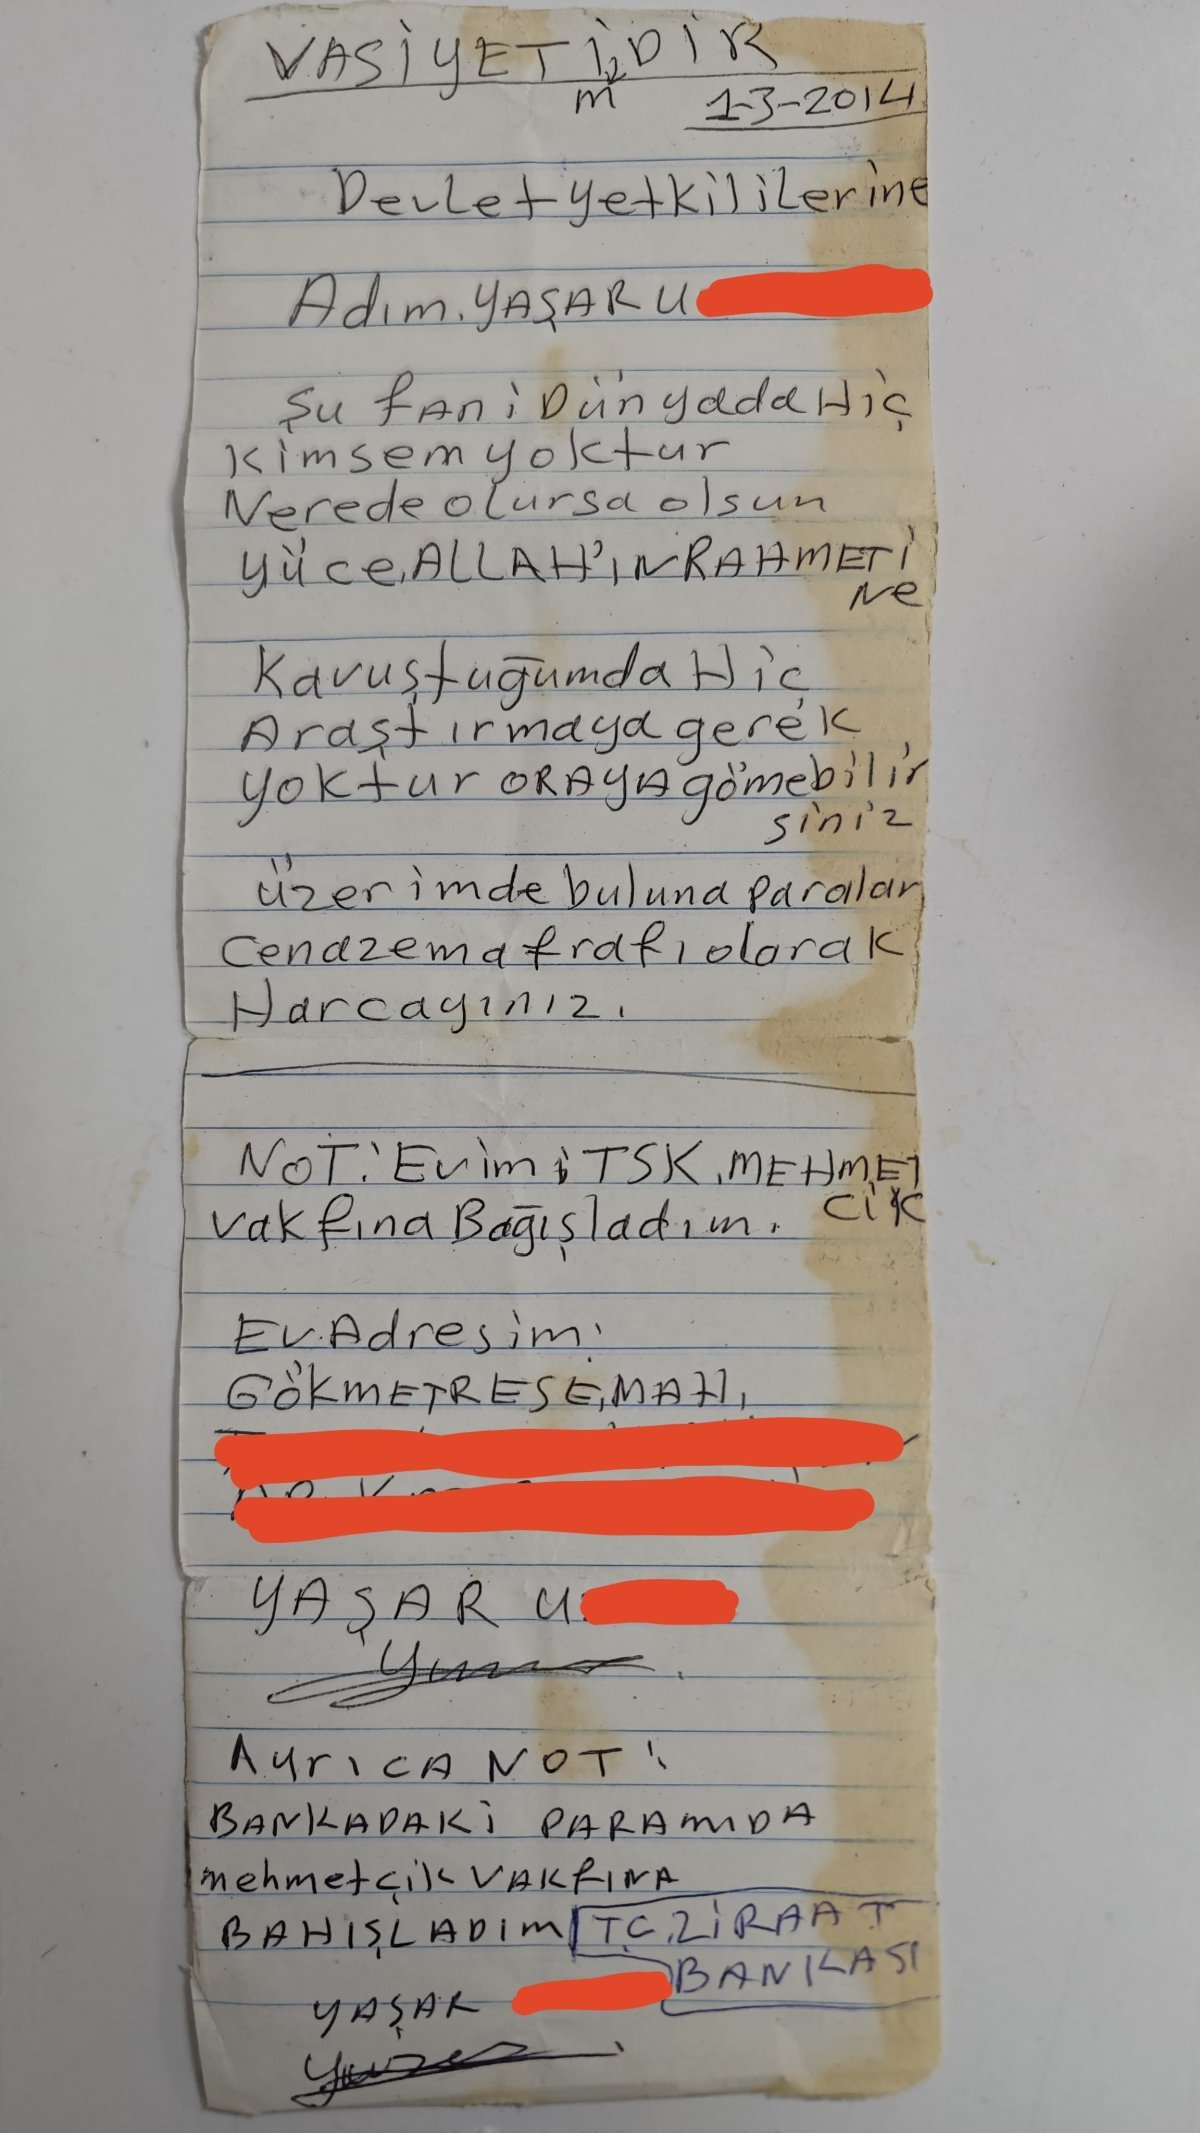 VASİYETİMDİR
1-3-2014
Devlet yetkililerine
Adım. YAŞAR U
Şu fani Dünyada Hiç
Kimsem yoktur
Nerede olursa olsun
yüce, ALLAH'IN RAHMETİ
Ne
Kavuştuğumda Hiç
Araştırmaya gerek
yoktur ORAYA gömebilir
siniz
üzerimde buluna paralar
Cenazema frafı olarak
Harcayınız.
NOT: Evimi TSK. MEHMET
CİK
vakfına Bağışladım.
Ev. Adresim:
GÖKMETRESE, MAH,
YAŞAR U
Ayrıca NOT:
BANKADAKİ PARAMIDA
mehmetçik VAKFINA
BAHIŞLADIM T.C. ZİRAAT
BANKASI
YAŞAR